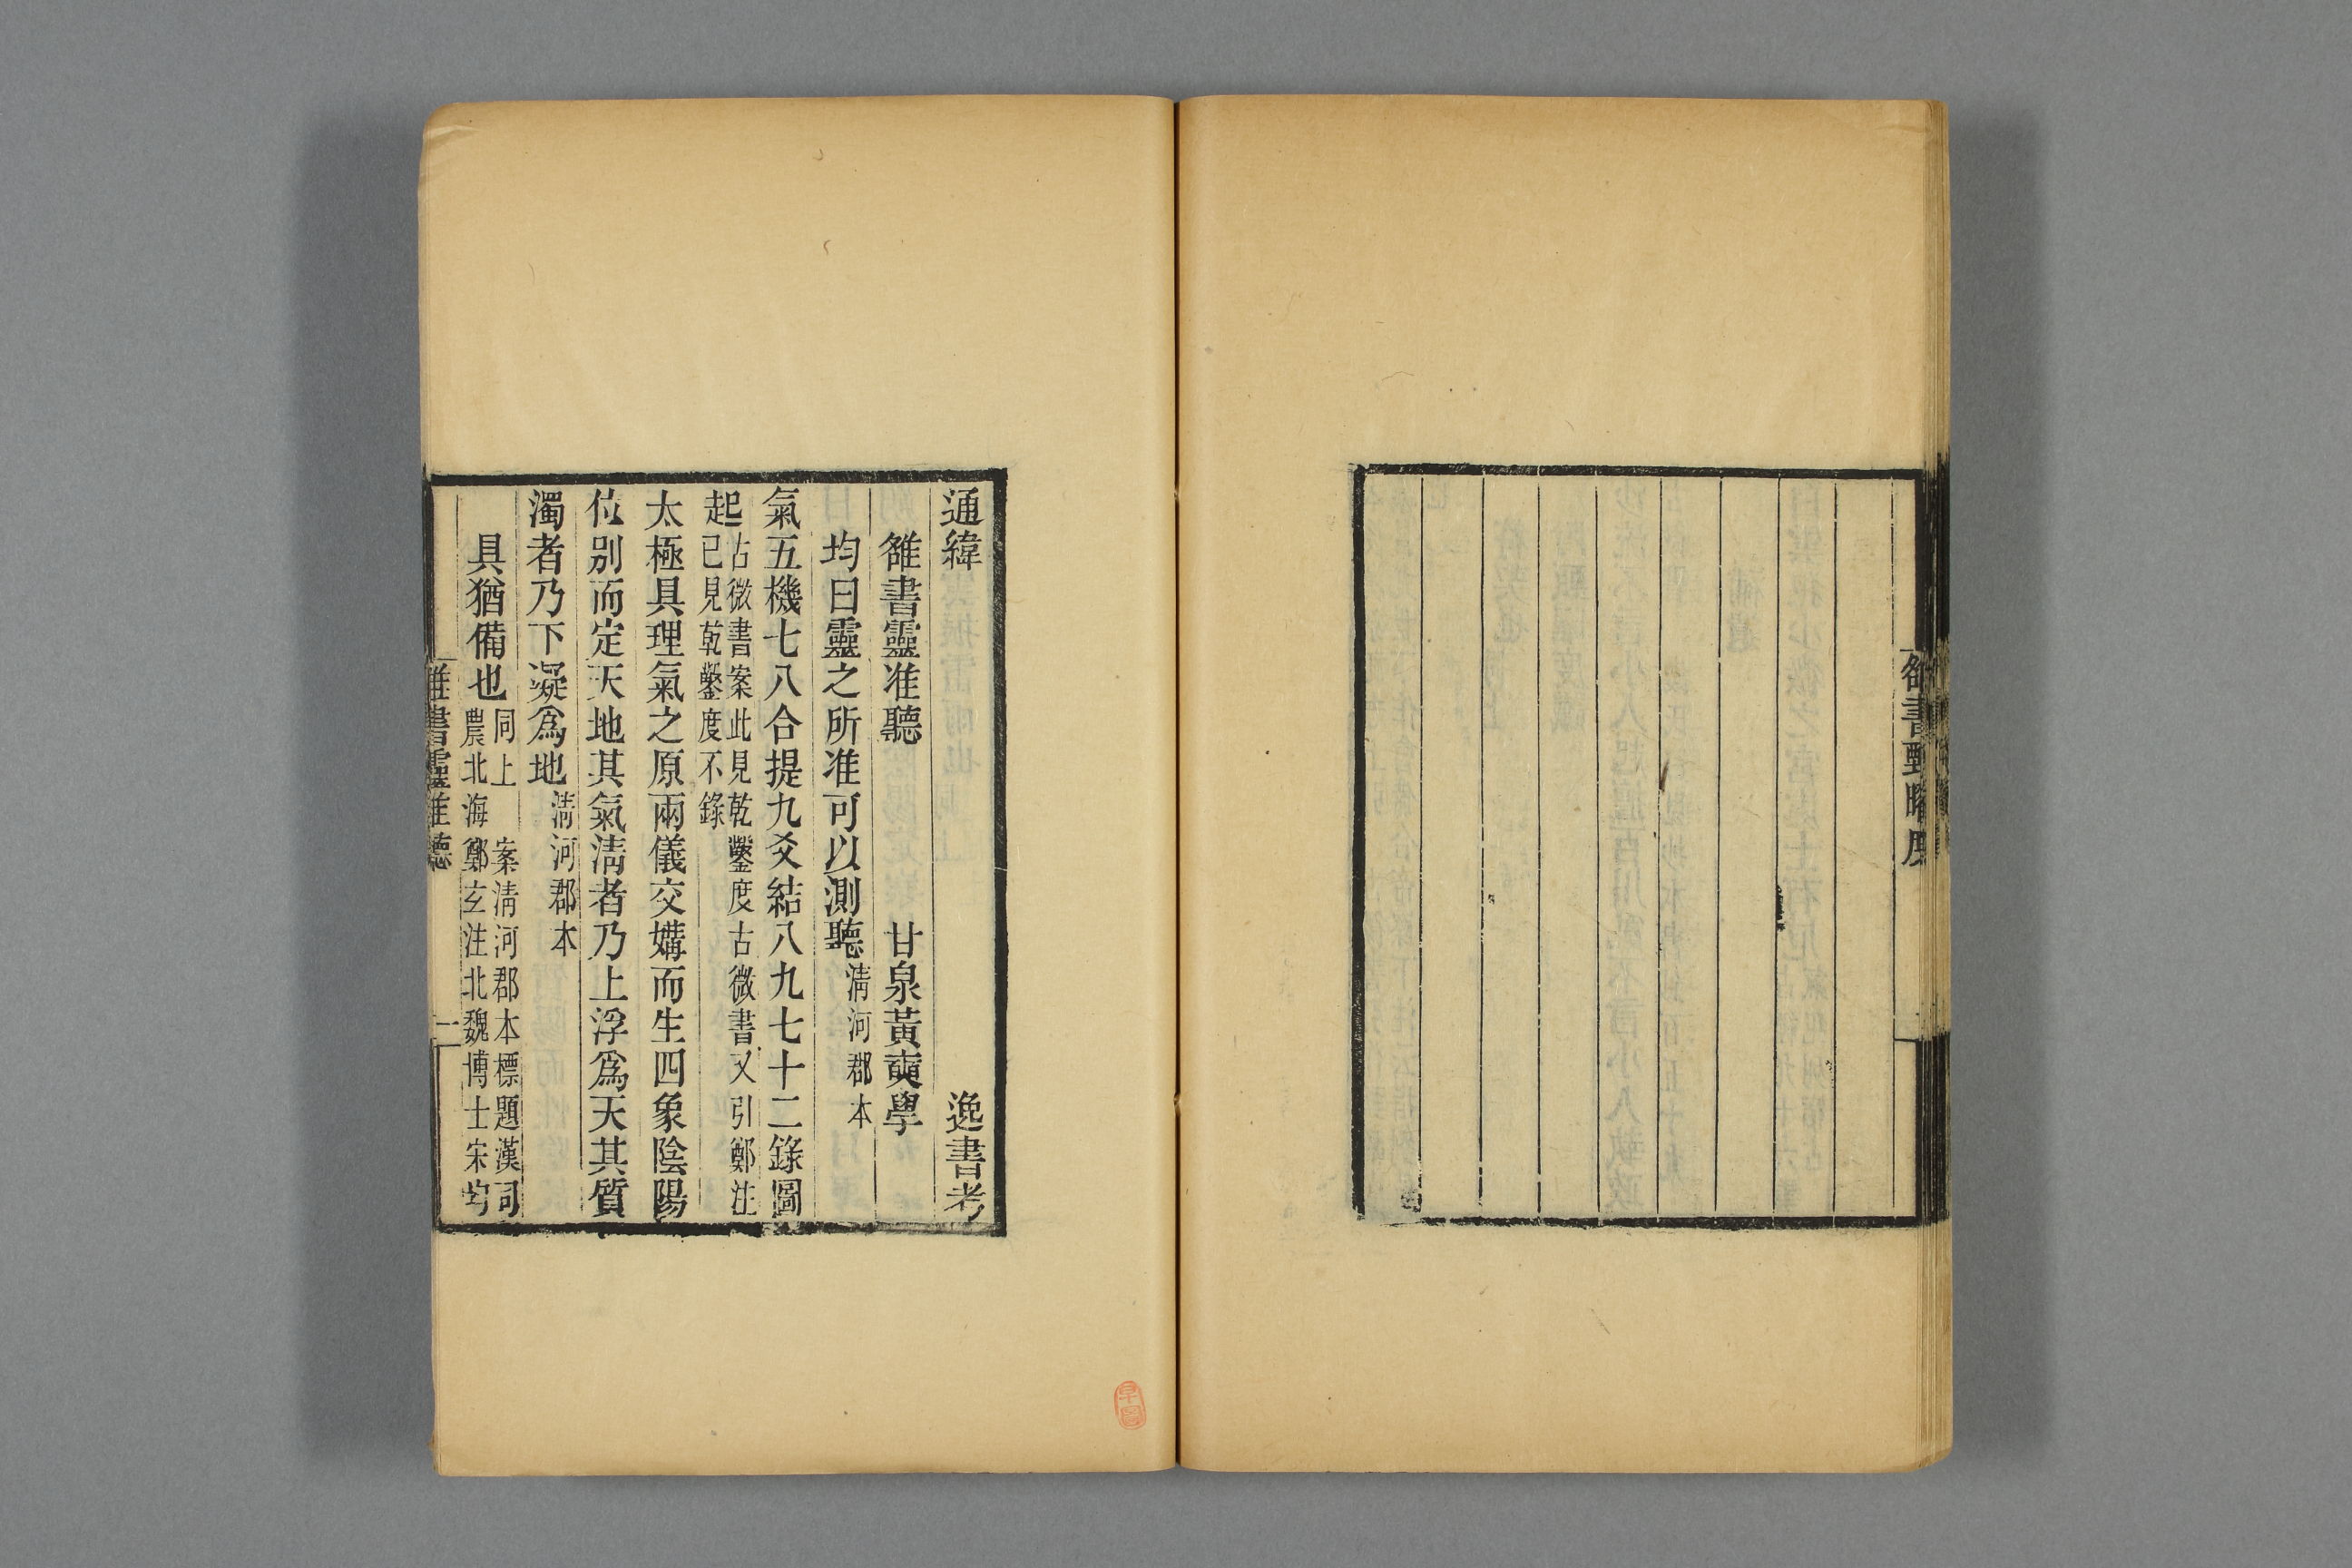 雒書甄曜度
通緯 逸書考
雒書靈准聽 甘泉黃奭學
均曰靈之所准可以測聽清河郡本
氣五機七八合提九爻結八九七十二錄圖
起占微書案此見乾鑿度古微書又引鄭注
已見乾鑿度不錄
太極具理氣之原兩儀交媾而生四象陰陽
位別而定天地其氣清者乃上浮爲天其質
濁者乃下凝爲地清河郡本
具猶備也同上 案清河郡本標題漢司
農北海鄭玄注北魏博士宋均
雒書靈准聽 一